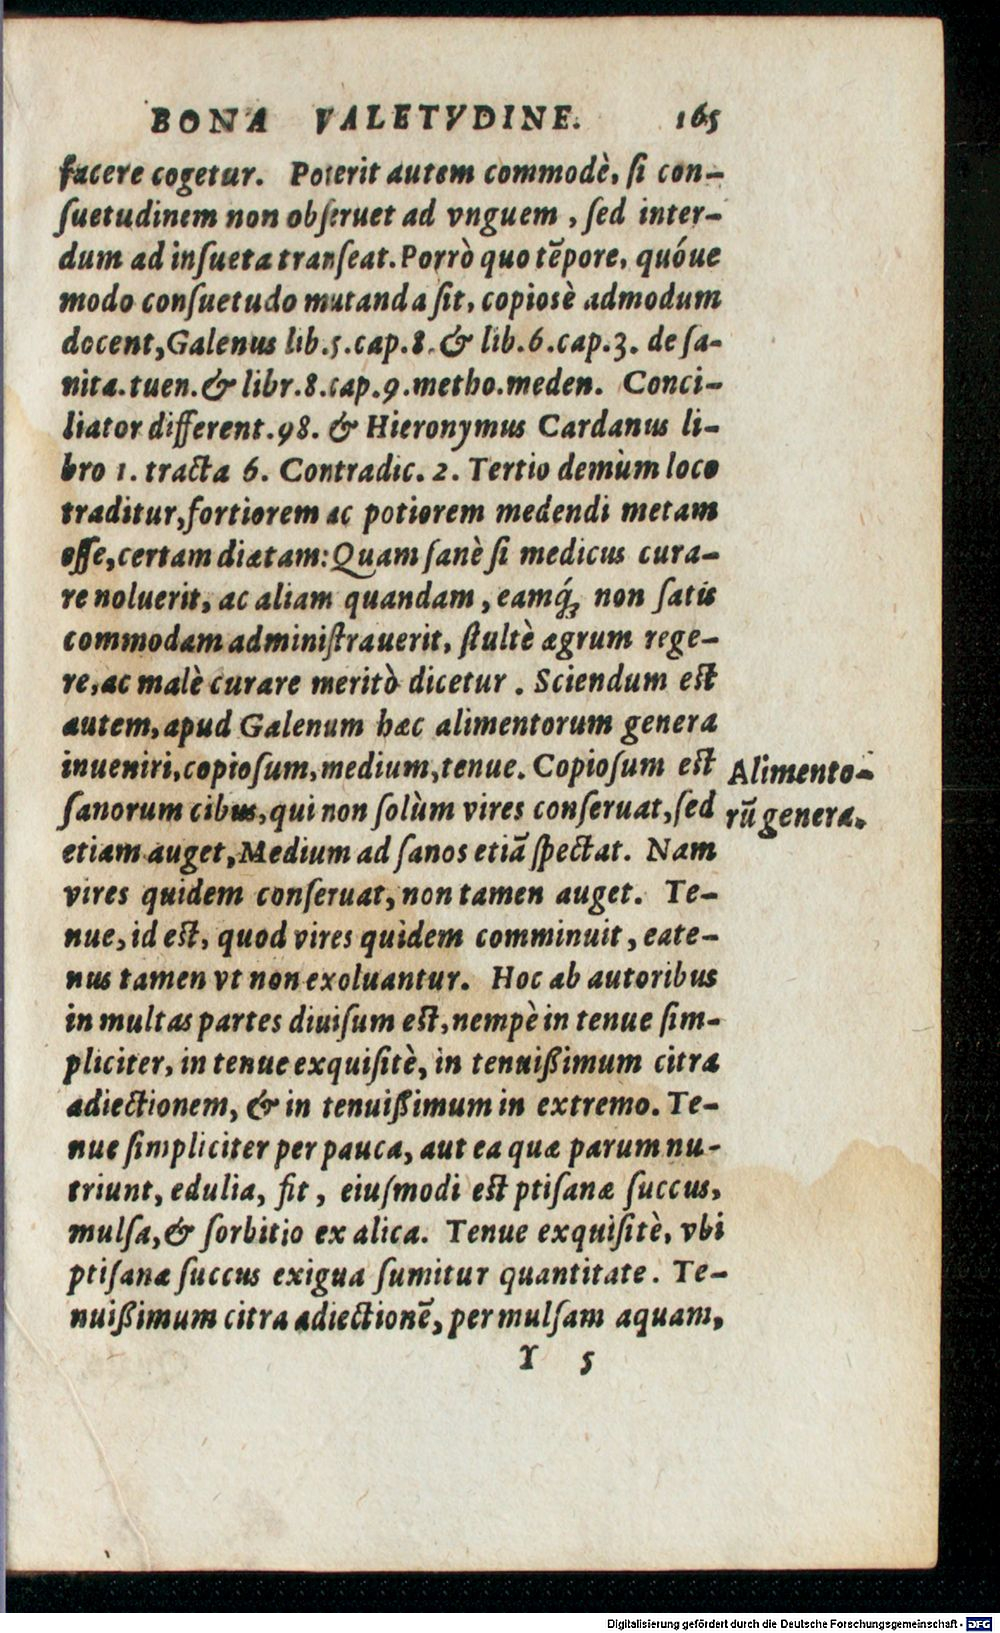 BONA VALETVDINE. 165
facere cogetur. Poterit autem commodè, ſi con-
ſuetudinem non obſeruet ad vnguem, ſed inter-
dum ad inſueta tranſeat. Porrò quo tẽpore, quóue
modo conſuetudo mutanda ſit, copiosè admodum
docent, Galenus lib.5.cap.8. & lib.6.cap.3. de ſa-
nita.tuen. & libr.8.cap.9.metho.meden. Conci-
liator different.98. & Hieronymus Cardanus li-
bro 1. tracta 6. Contradic. 2. Tertio demùm loco
traditur, fortiorem ac potiorem medendi metam
eſſe, certam diætam: Quam ſanè ſi medicus cura-
re noluerit, ac aliam quandam, eamq́; non ſatis
commodam adminiſtrauerit, ſtultè ægrum rege-
re, ac malè curare meritò dicetur. Sciendum eſt
autem, apud Galenum hæc alimentorum genera
inueniri, copioſum, medium, tenue. Copioſum eſt
Alimento-
ſanorum cibus, qui non ſolùm vires conſeruat, ſed
rũ genera.
etiam auget, Medium ad ſanos etiã ſpectat. Nam
vires quidem conſeruat, non tamen auget. Te-
nue, id eſt, quod vires quidem comminuit, eate-
nus tamen vt non exoluantur. Hoc ab autoribus
in multas partes diuiſum eſt, nempè in tenue ſim-
pliciter, in tenue exquiſitè, in tenuißimum citra
adiectionem, & in tenuißimum in extremo. Te-
nue ſimpliciter per pauca, aut ea quæ parum nu-
triunt, edulia, fit, eiuſmodi eſt ptiſanæ ſuccus,
mulſa, & ſorbitio ex alica. Tenue exquiſitè, vbi
ptiſanæ ſuccus exigua ſumitur quantitate. Te-
nuißimum citra adiectionẽ, per mulſam aquam,
Y 5
Digitalisierung gefördert durch die Deutsche Forschungsgemeinschaft - DFG